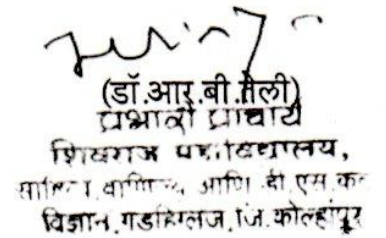 (डॉ.आर.बी.तेली)
प्रभारी प्राचार्य
शिवराज महाविद्यालय,
आणि डी.एस.
विज्ञान.गडहिंग्लज.जि.कोल्हापूर